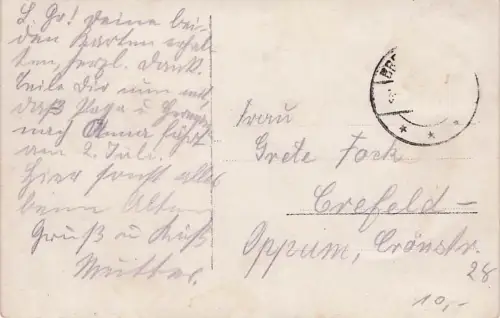 L. Gr! Deine bei-
den Karten erhal-
ten, herzl. Dank.
Teile Dir nun mit,
daß Papa u
nach Anna fährt
am 2. Juli.
Hier sonst alles
beim Alten
Gruß u Kuß
Mutter.
BRE
Frau
Grete Fock
Crefeld-
Oppum, Crönstr.
28
10,-